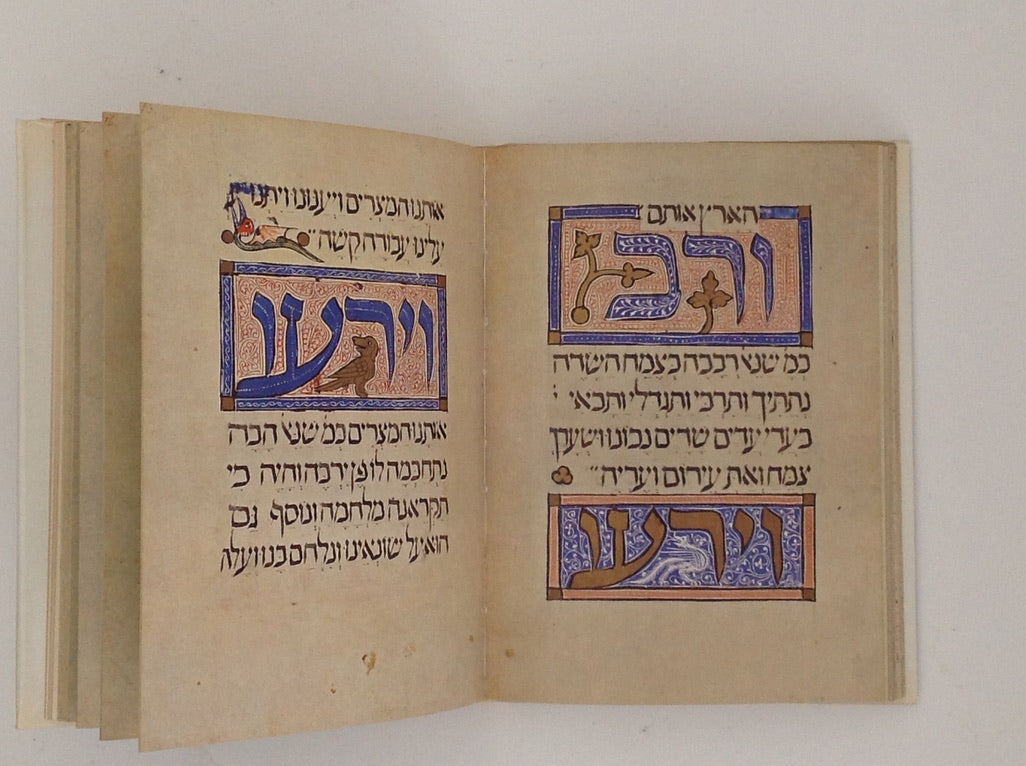 הארץ אותם
ורב
כמ שנא' רבבה כצמח השדה
נתתיך ותרבי ותגדלי ותבאי
בעדי עדים שדים נכונו ושערך
צמח ואת עירום ועריה
וירעו
אותנו המצרים ויענונו ויתנו
עלינו עבודה קשה
וירעו
אותנו המצרים כמ שנא' הבה
נתחכמה לו פן ירבה והיה כי
תקראנה מלחמה ונוסף גם
הוא על שונאינו ונלחם בנו ועלה